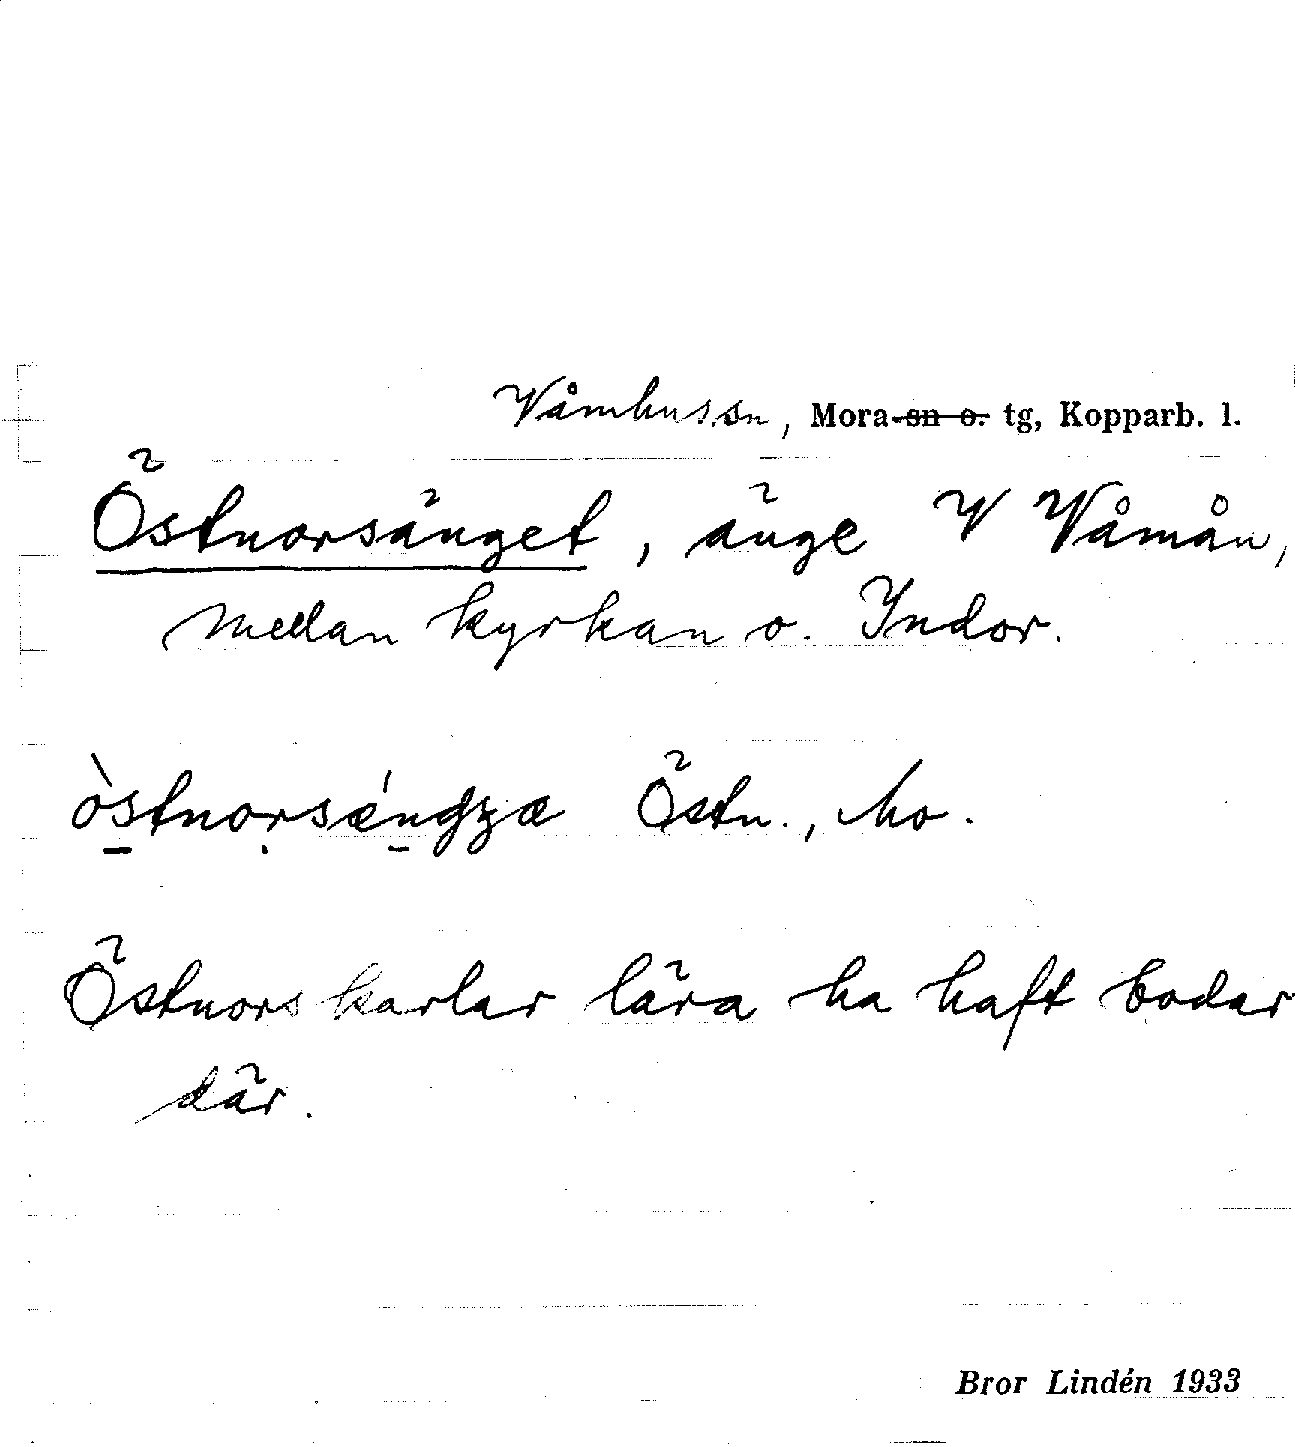 Våmhus sn, Mora- sn o. tg, Kopparb. l.
Östnorsänget, änge V Våmån,
medan kyrkan o. Indor.
òstnorsǽngʒæ Östn., Mo.
Östnorskarlar lära ha haft bodar
där.
Bror Lindén 1933